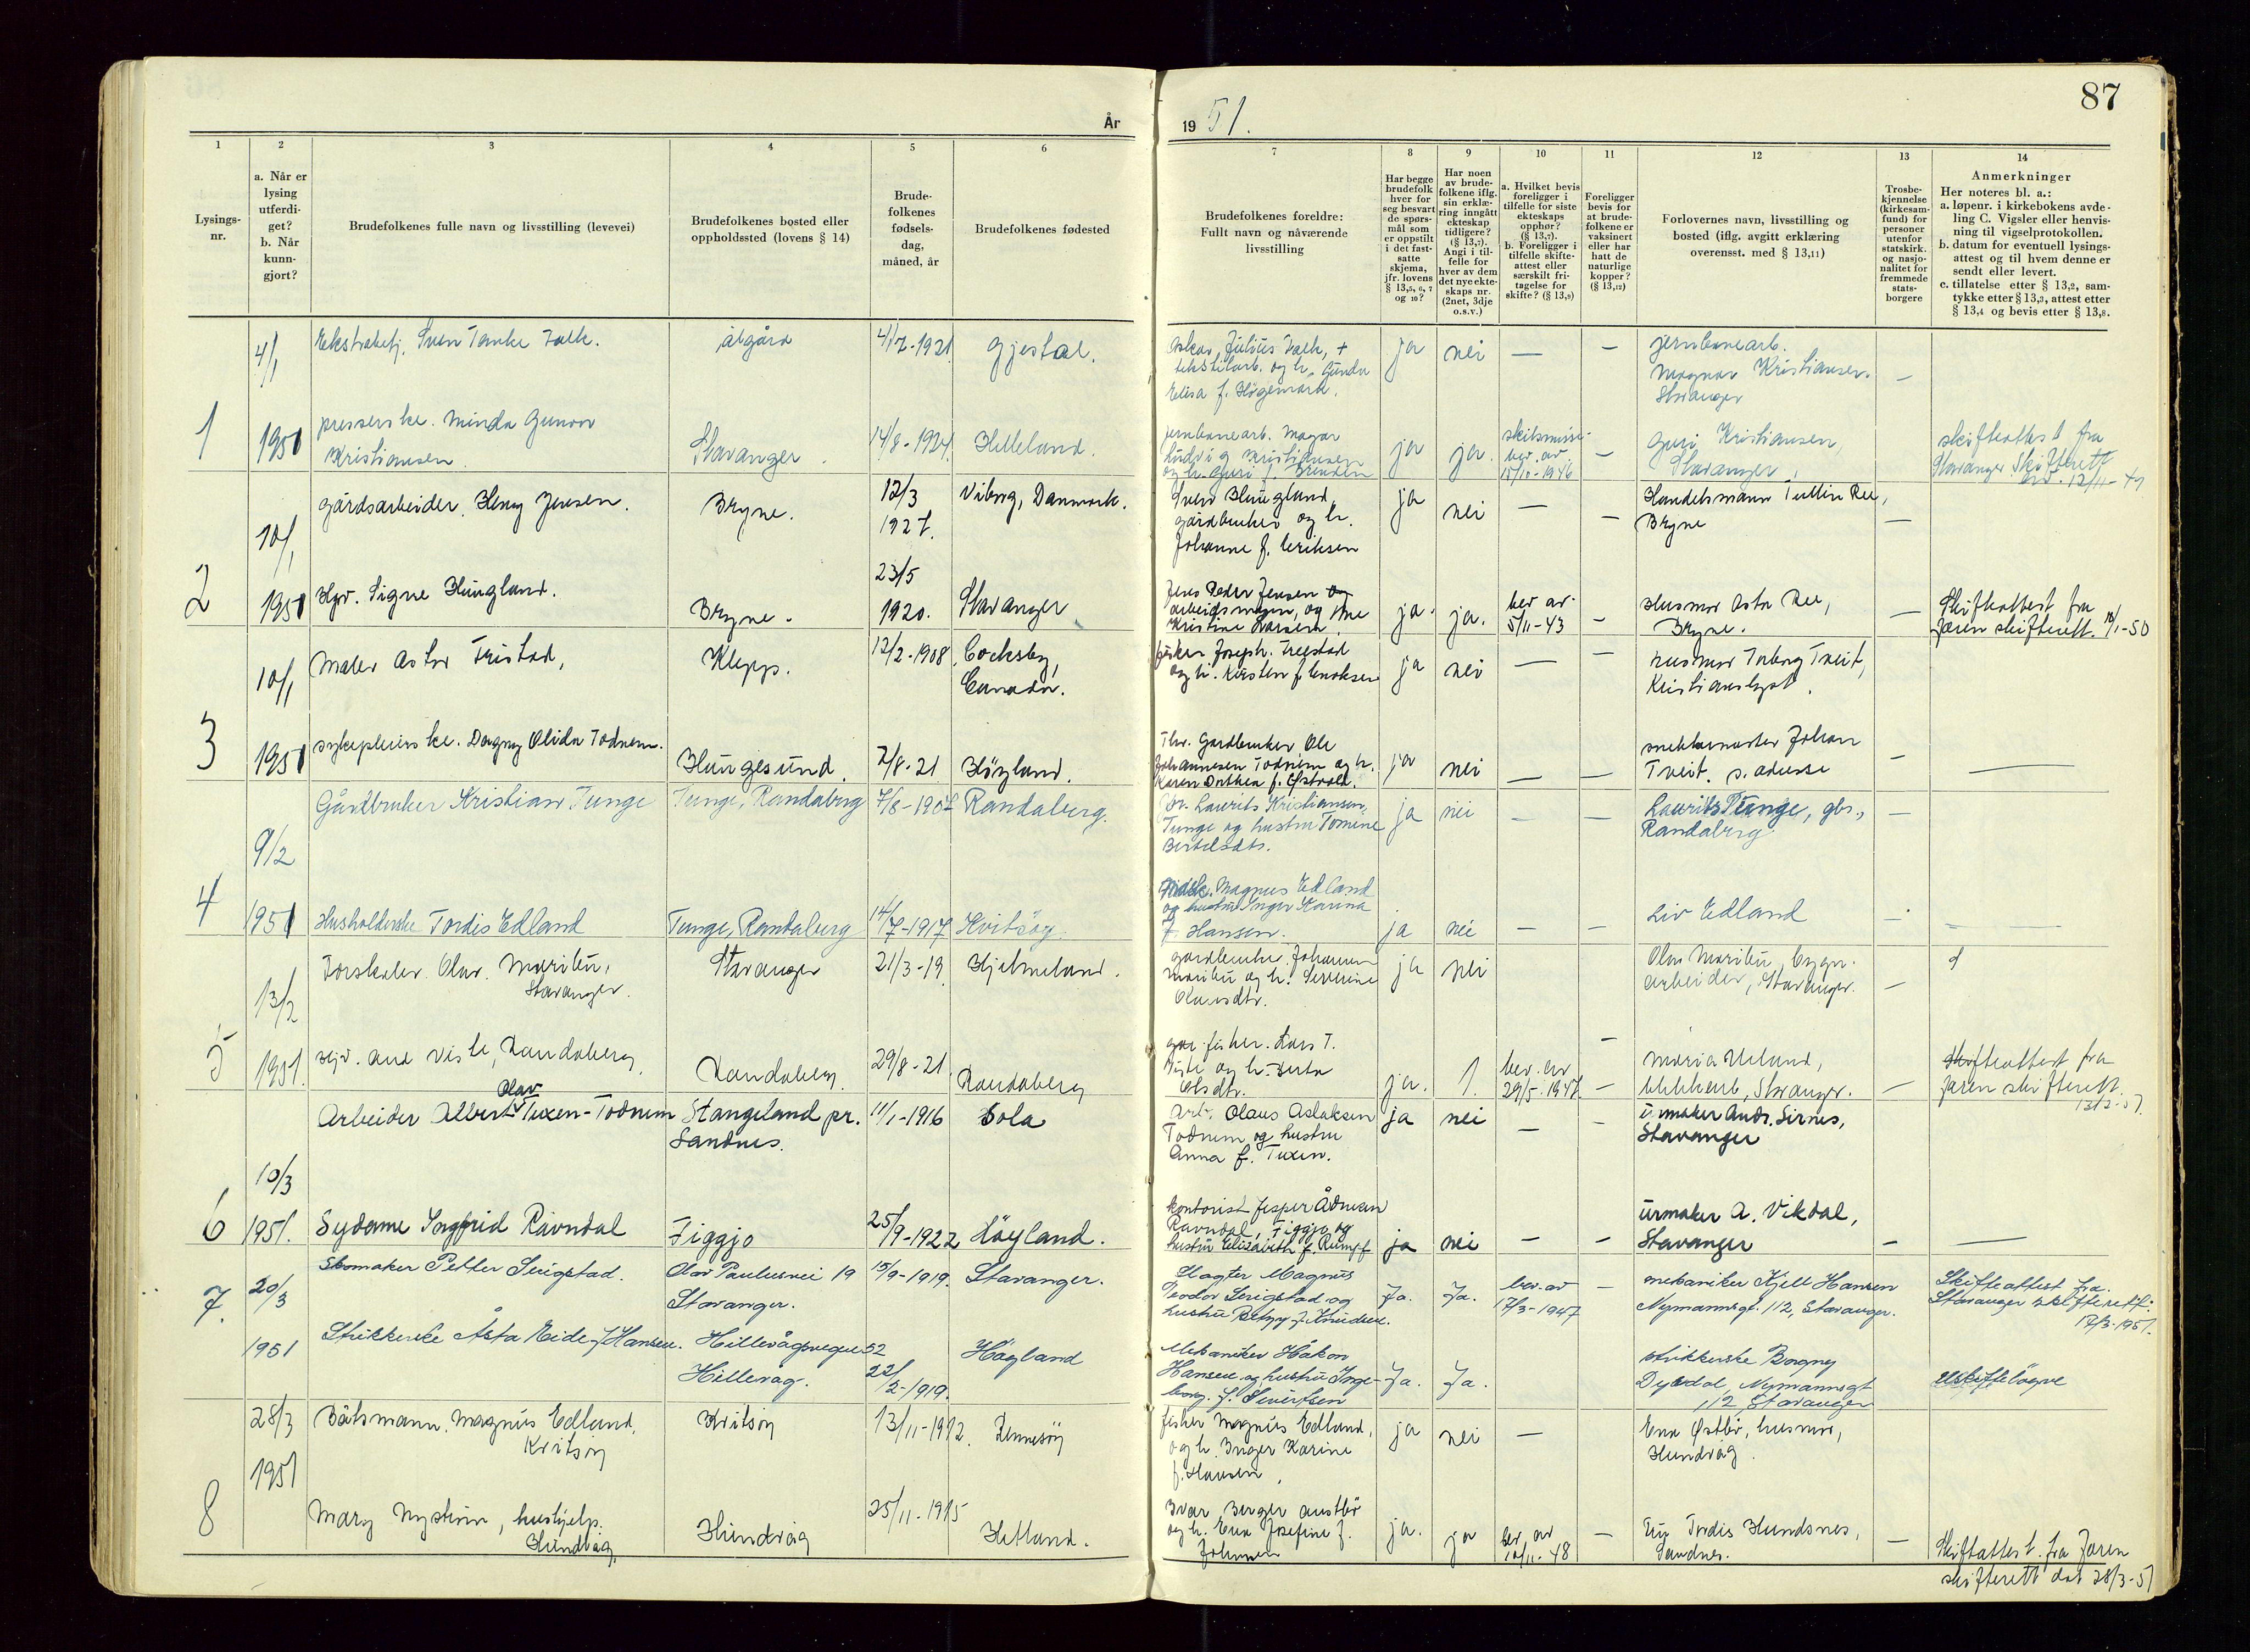 87
År
19 51.
1
2
3
4
5
6
7
8
9
10
11
12
13
14
Lysings-
nr.
a. Når er
lysing
utferdi-
get?
b. Når
kunn-
gjort?
Brudefolkenes fulle navn og livsstilling (levevei)
Brudefolkenes bosted eller
oppholdssted (lovens § 14)
Brude-
folkenes
fødsels-
dag,
måned, år
Brudefolkenes fødested
Brudefolkenes foreldre:
Fullt navn og nåværende
livsstilling
Har begge
brudefolk
hver for
seg besvart
de spørs-
mål som
er oppstilt
i det fast-
satte
skjema,
jfr. lovens
§ 13,5, 6, 7
og 10?
Har noen
av brude-
folkene iflg.
sin erklæ-
ring inngått
ekteskap
tidligere?
(§ 13,7).
Angi i til-
felle for
hver av dem
det nye ekte-
skaps nr.
(2net, 3dje
o.s.v.)
a. Hvilket bevis
foreligger i
tilfelle for siste
ekteskaps
opphør?
(§ 13,7).
b. Foreligger i
tilfelle skifte-
attest eller
særskilt fri-
tagelse for
skifte? (§ 13,9)
Foreligger
bevis for
at brude-
folkene er
vaksinert
eller har
hatt de
naturlige
kopper?
(§ 13,12)
Forlovernes navn, livsstilling og
bosted (iflg. avgitt erklæring
overensst. med § 13,11)
Trosbe-
kjennelse
(kirkesam-
fund) for
personer
utenfor
statskirk.
og nasjo-
nalitet for
fremmede
stats-
borgere
Anmerkninger
Her noteres bl. a.:
a. løpenr. i kirkebokens avde-
ling C. Vigsler eller henvis-
ning til vigselprotokollen.
b. datum for eventuell lysings-
attest og til hvem denne er
sendt eller levert.
c. tillatelse etter § 13,2, sam-
tykke etter § 13,3, attest etter
§ 13,4 og bevis etter § 13,8.
1
4/1
1951
Sven Tanke Falk.
ålgård
4/7-1921
Gjestal.
Oskar Julius Falk, +
tekstilarb. og h. Gunda
Elisa f.
ja
nei
—
—
jernbanearb.
Magnar Kristiansen.
Stavanger
—
presserske. Minda Gunvor
Kristiansen.
Stavanger
14/8-1924.
Helleland.
jernbanearb. Magnar
Ludvig Kristiansen
og h. Guri f.
ja
ja.
skilsmisse-
bev. av
15/10-1946
—
Guri Kristiansen,
Stavanger,
skifteattest fra
Stavanger Skifterett
2
10/1
1951
gårdsarbeider. Henry Jensen.
Bryne.
12/3
1927.
Viborg, Danmark.
Sven Haugland,
gårdbruker og h.
Johanne f. Eriksen
ja
nei
—
—
Handelsmann Tullin Ree,
Bryne
—
Hjv. Signe Haugland.
Bryne.
23/5
1920.
Stavanger
Jens Peder Jensen
arbeidsmann, og Ane
Kristine Larsen.
ja.
ja.
bev. av
5/11-43
—
Husmor Asta Ree,
Bryne.
—
Skifteattest fra
Jæren skifterett. 10/1-50
3
10/1
1951
Maler Astor Tristad,
Klepp.
12/2-1908
Canada.
fisker Joseph. Treestad
og h. Kirsten f. Enoksen
ja
nei
—
—
husmor Torborg Tveit,
Kristianslyst.
sykepleierske. Dagny Olida Todnem.
Haugesund.
7/8-21
Höyland.
Thv. Gardbruker Ole
Johannesen Todnem og h.
Karen Dorthea f. Østvold.
ja
nei
—
—
snekkermester Johan
Tveit. s. adresse
—
—
4
9/2
1951
Gårdbruker Kristian Tunge
Tunge, Randaberg
7/8-1907
Randaberg.
Laurits Kristiansen
Tunge og hustru Tomine
Bertelsdtr.
ja
nei
—
—
Laurits Tunge, gbr.,
Randaberg
—
Husholderske Tordis Edland
Tunge, Randaberg
14/7-1917
Kvitsöy.
Magnus Edland
og hustru Inger Karina
f. Hansen.
ja
nei
—
—
Liv Edland
—
—
5
13/2
1951.
Forskaler. Olav. Maribu,
Stavanger.
Stavanger
21/3-19.
Hjelmeland.
gardbruker. Johannes
Maribu og h. Severine
Olavsdtr.
ja
nei
Olav Maribu, bygn.
arbeider, Stavanger.
—
Hjv. Ane Viste, Randaberg
Randaberg.
29/8-21
Randaberg
fisker. Lars T.
Viste og h. Berta
Olsdtr.
ja.
1.
bev. av
29/5-1947.
—
Maria Ueland,
Stavanger.
—
Skifteattest fra
Jæren skifterett
13/2-51.
6
10/3
1951.
Olav
Arbeider Albert Tuxen-Todnem
Stangeland pr.
Sandnes.
11/1-1916
Sola
Arb. Olaus Aslaksen
Todnem og hustru
Anna f. Tuxen.
ja
nei
—
—
Urmaker Andr. Sirnes,
Stavanger
Sydame Ingfrid Ravndal
Figgjo
25/9-1922
Höyland.
kontorist Jesper Ådnesen
Ravndal, Figgjo og
hustru Elizabeth f. Rumpf
ja
nei
—
—
urmaker A. Vikdal,
Stavanger
—
—
7.
20/3
1951
Skomaker Petter Serigstad.
Olav Paulusvei 19
Stavanger.
15/9-1919.
Stavanger.
Slagter Magnus
Teodor Serigstad og
hustru Betzy f. Knudsen.
Ja.
Ja.
bev. av
17/3-1947
—
mekaniker Kjell Hansen
Nymannsgt. 112, Stavanger.
Skifteattest fra
Stavanger skifterett:
17/3-1951.
Strikkerske Åsta Eide f. Hansen.
Hillevågsvegen 52
Hillevåg.
22/2-1919.
Höyland
Mekaniker Håkon
Hansen og hustru Inge-
borg. f. Sivertsen
Ja.
Ja.
strikkerske Borgny
Dybdal, Nymannsgt
112 Stavanger
8
28/3
1951
Båtsmann. Magnus Edland,
Kvitsöy
Kvitsöy
13/11-1912.
Rennesöy
fisker Magnus Edland,
og h. Inger Karine
f. Hansen.
ja
nei
—
Ena Østbö, husmor,
Hundvåg.
Mary Nyström, hushjelp.
Hundvåg.
Hundvåg
25/11-1915
Hetland.
Ivar Berger Austbö
og h. Ena Josefine f.
Johnsen
ja.
ja
bev. av
10/11-48
—
Tordis Hundsnes,
Sandnes.
—
Skifteattest. fra Jæren
skifterett dat 28/3-51